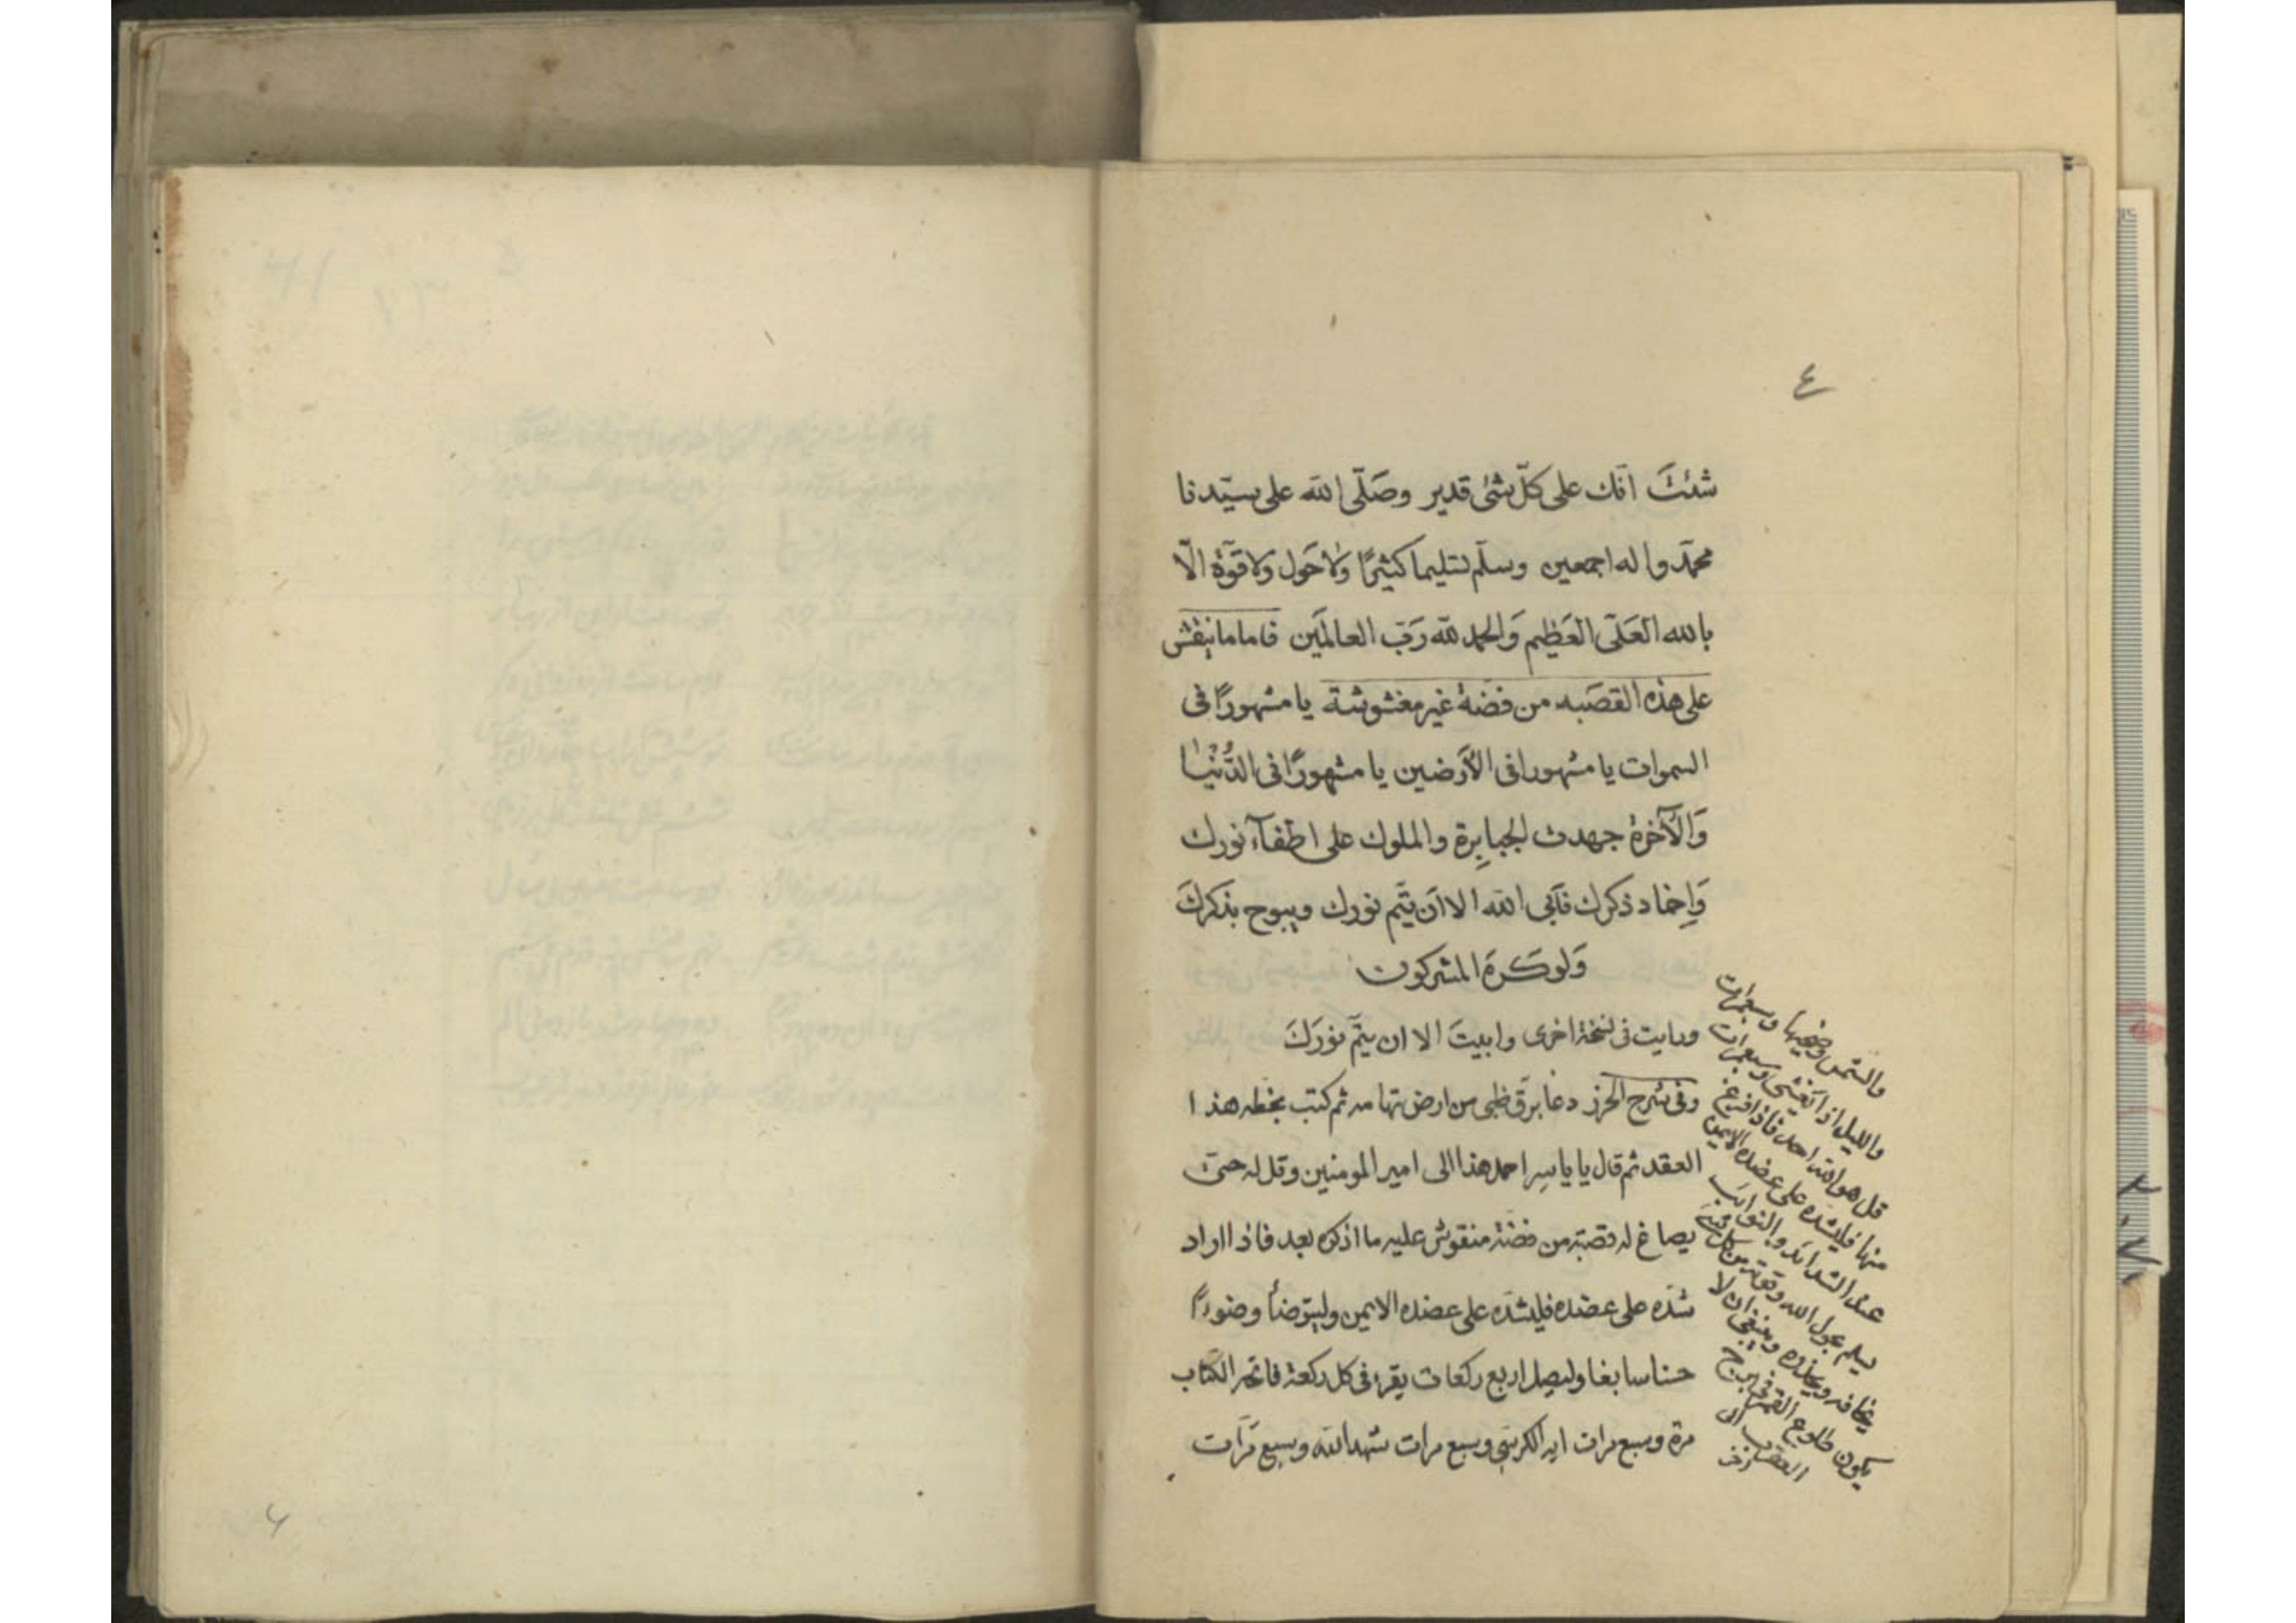 ٤
شئتَ انّك على كلّ شئ قدير وصَلّى الله على سيّدنا
محمّد واله اجمعين وسلّم تسليما كثيرًا وَلاحَول وَلا قوّة الّا
بالله العَلىّ العَظيم وَالحمد لله رَبّ العالمَين فاما ما ينقش
على هذه القصَبه من فضّة غير مغشوشة يا مشهورًا فى
السموات يا مشهورا فى الأرَضين يا مشهورًا فى الدُّنْيا
وَالآخرة جهدت الجبابِرة والملوك على اطفآء نورك
وَاِخماد ذكرك فَآبى الله الا اَن يتّم نورك ويبوح بذكركَ
وَلوكَرهَ المشركون
ورايت فى نسخة اخرى وابيتَ الا ان يتمّ نورَكَ
وفى شرح الحرز دعا برقّ ظبى من ارض تهامه ثم كتب بخطه هذا
العقد ثم قال يا ياسِر احمل هذا الى امير المومنين وقل له حتىّ
يصاغ له قصبة من فضّة منقوش عليه ما اذكره بعد فاذا اراد
شدّه على عضده فليشدّه على عضده الايمن وليتوضأ وضوءًا
حسنا سابغا وليصل اربع ركعات يقرء فى كل ركعة فاتحه الكتاب
مرة وسبع مرات ايه الكرسىِ وسبع مرات شهد الله وسبع مَرّات
والشمس وضحيها وسبع مرات
والليل اذا يَغشى وسبع مرات
قل هو الله احد فاذا فرغ
منها فليشدّه على عضده الايمن
عند الشدائد والنوائب
يسلم بحول الله وقوته من كل شئ
يخافه ويحذره وينبغى ان لا
يكون طلوع القمر فى برج
العقرب الى
اخر
٦